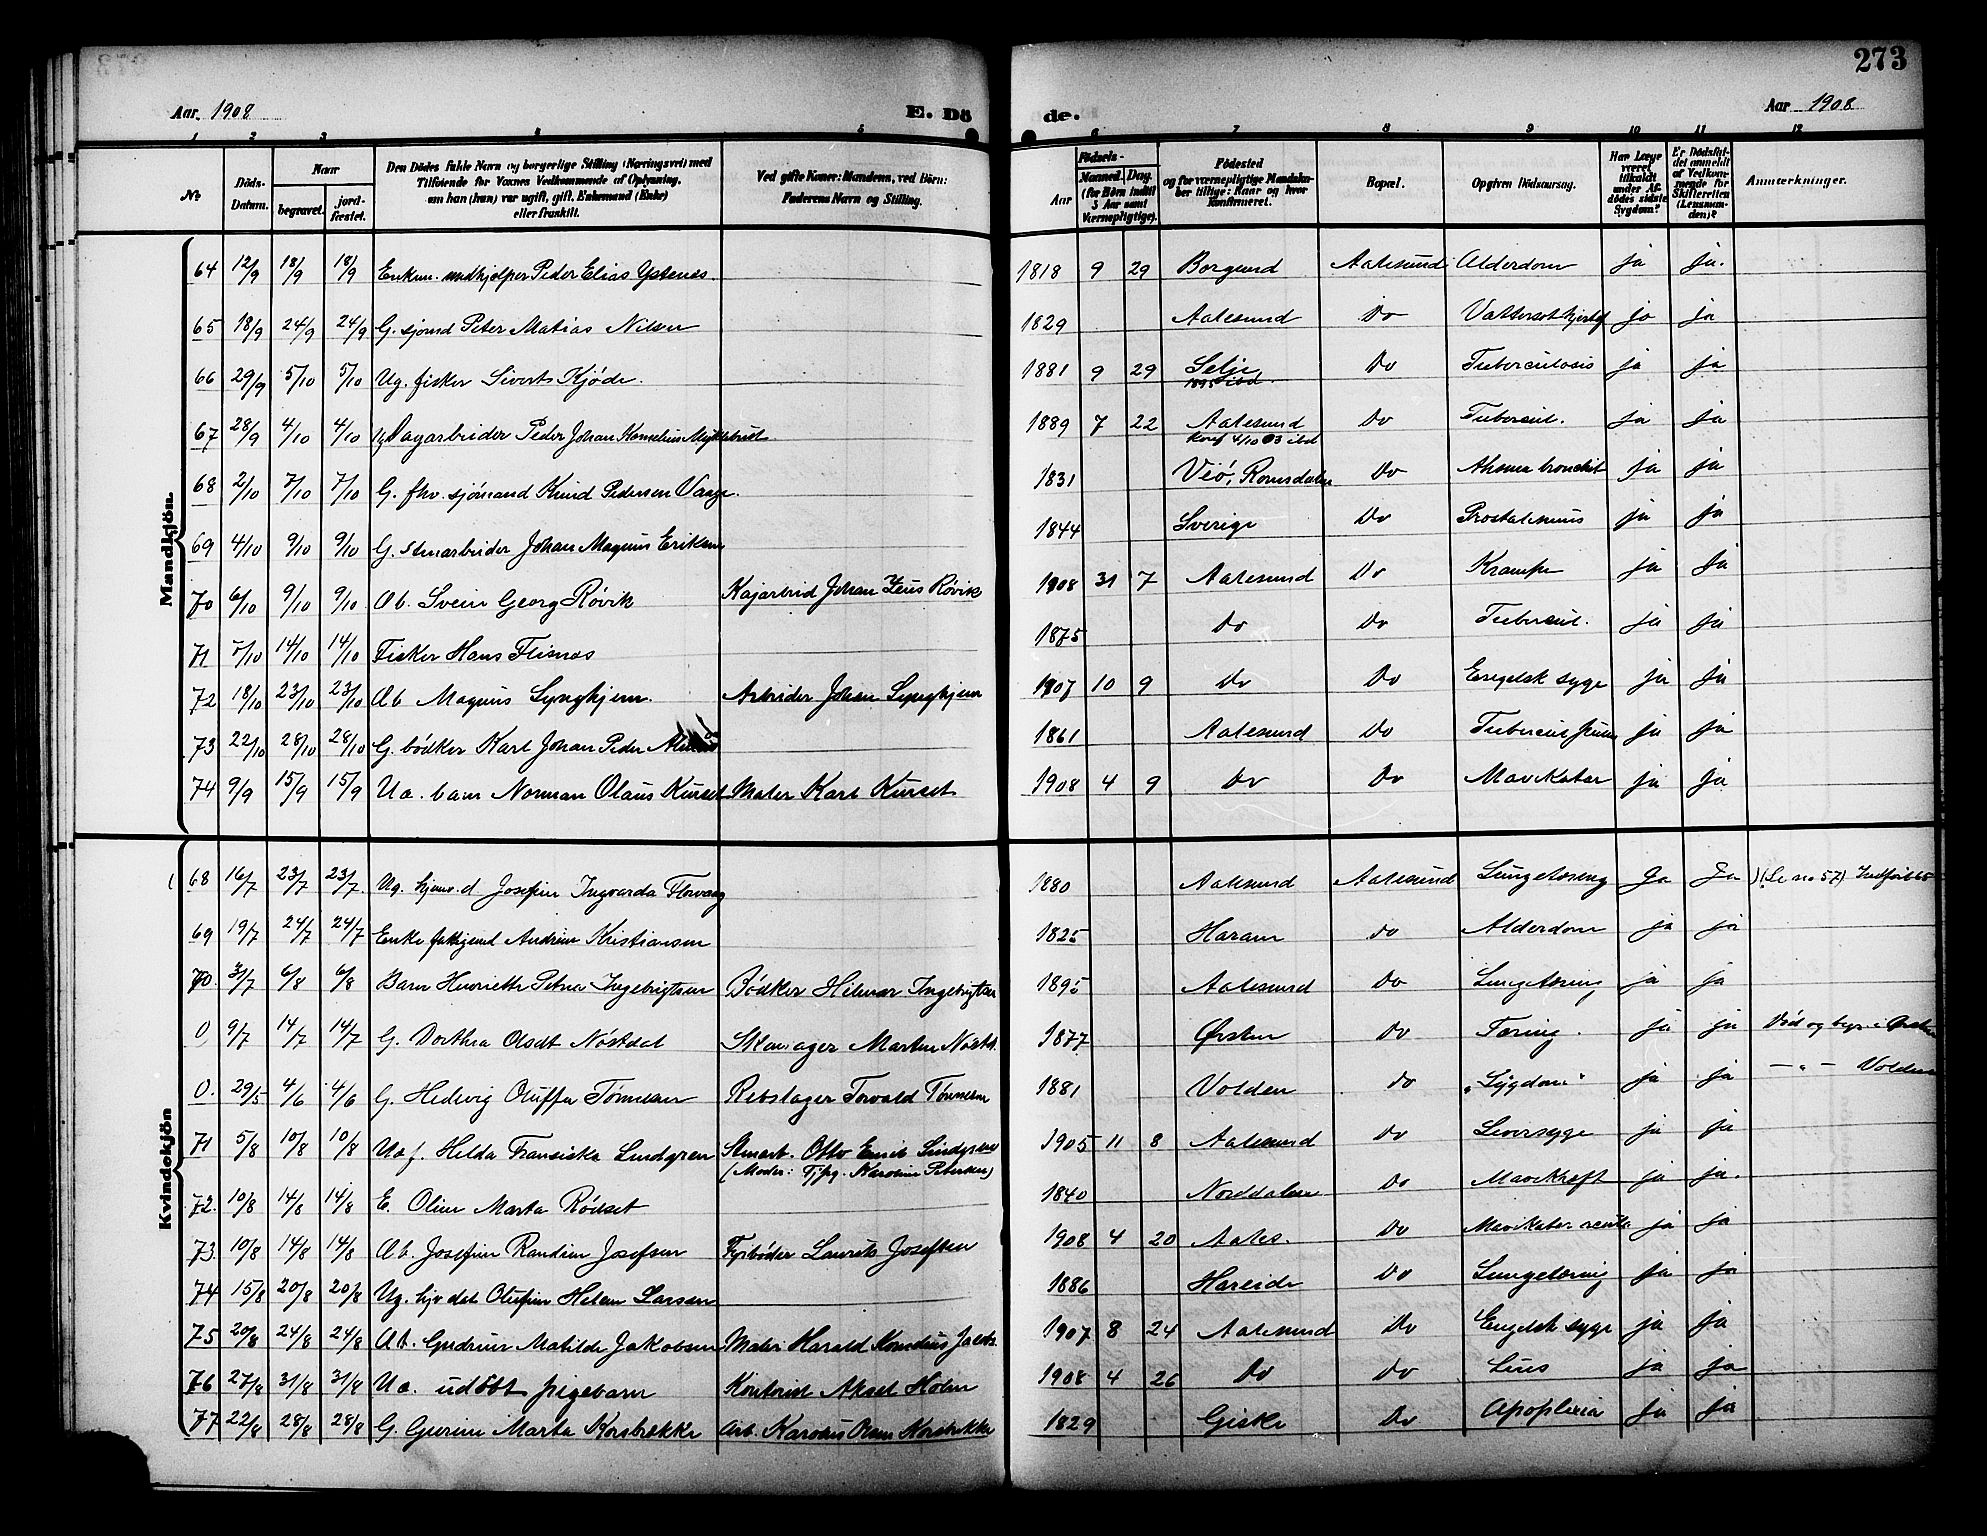 273
Aar 1908 E. Dö de. Aar 1908
1 2 3 4 5 6 7 8 9 10 11 12
№ Døds-Datum. Naar begravet. jordfæstet. Den Dödes fulde Navn og borgerlige Stilling (Næringsvei) med Tilføiende for Voxnes Vedkommende af Oplysning, om han (hun) var ugift, gift, Enkemand (Enke) eller fraskilt. Ved gifte Koner: Mandens, ved Börn: Faderens Navn og Stilling. Fødsels- Aar Maaned. Dag. (for Börn indtil 5 Aar samt Værnepligtige). Födested og for værnepligtige Mandskaber tillige: Naar og hvor konfirmeret. Bopæl. Opgiven Dödsaarsag. Har Læge været tilkaldt under Afdödes sidste Sygdom? Er Dödsfaldet anmeldt af Vedkommende for Skifteretten (Lensmanden)? Anmærkninger.
Mandkjön
64 12/9 18/9 18/9 Enkem. Peder Elias Ystenes. 1818 9 29 Borgund Aalesund Alderdom ja ja.
65 18/9 24/9 24/9 G. sjömd Peter Matias Nilsen 1829 Aalesund Do ja ja
66 29/9 5/10 5/10 Ug. fisker Siverts Kjöde. 1881 9 29 Selje Do Tuberculosis ja ja
67 28/9 4/10 4/10 Ug Dagarbeider Peder Johan Kornelius Myklebust 1889 7 22 Aalesund Do Tubercul. ja ja
Konf 4/10 03 ibd
68 2/10 7/10 7/10 G. fhv. sjömand Knud Pedersen Vaage. 1831 Veö, Romsdalen Do bronchit ja ja
69 4/10 9/10 9/10 G. Stenarbeider Johan Magnus Eriksen 1844 Sverige Do ja ja
70 6/10 9/10 9/10 Æb. Svein Georg Rövik Kajarbeid Johan Jens Rövik 1908 31 7 Aalesund Do Krampe ja ja
71 7/10 14/10 14/10 Fisker Hans Flisnes 1875 Do Do Tubercul. ja ja
72 18/10 23/10 23/10 Æb Magnus Lynghjem. Arbeider Johan Lynghjem 1907 10 9 Do Do Engelsk syge ja ja
73 22/10 28/10 28/10 G. bödker Karl Johan Peder 1861 Aalesund Do Tubercul ja ja
74 9/9 15/9 15/9 Uæ. barn Norman Olaus Kurset Maler Karl Kurset 1908 4 9 Do Do Mavekatar ja ja
Kvindekjön
( 68 16/7 23/7 23/7 Ug. hjemv. d Josefin Ingvarda Flovaag 1880 Aalesund Aalesund Lungetæring Ja Ja ) (Se no 57)
69 19/7 24/7 24/7 Enke Andrine Kristiansen 1825 Haram do Alderdom ja ja
70. 31/7 6/8 6/8 Barn Henriette Petra Ingebrigtsen Bödker Hilmar Ingebrigtsen 1895 Aalesund Do Lungetæring ja ja
0 9/7 14/7 14/7 G. Dorthea Olsdt Nöstdal Skomager Martin Nöstd. 1877 Örsten Do Tæring. ja ja Död og begr. i Örsten
0. 29/5 4/6 4/6 G. Hedevig Oluffa Tönnesen Rebslager Torvald Tönnesen 1881 Volden do "Sygdom" ja ja — " — Volden
71 5/8 10/8 10/8 Uæf. Helda Fransiska Lindgren Stenarb. Otto Emil Lindgren 1905 11 8 Aalesund do Leversyge ja ja
(Moder: Tj.pg. Karoline Petersen)
72. 10/8 14/8 14/8 E. Oline Marta Rödset 1840 Norddalen Do Mavekræft ja ja.
73. 10/8 14/8 14/8 Æb. Josefine Randine Josefsen Fyrböder Laurits Josefsen 1908 4 20 Aales. Do Mavekatar ja ja
74 15/8 20/8 20/8 Ug. Olufine Helene Larsen 1886 Hareide Do Lungetæring ja ja
75 20/8 24/8 24/8 Æb. Gudrun Matilde Jakobsen Maler Harald Kornelius Jacobs. 1907 8 24 Aalesund Do Engelsk syge ja ja
76 27/8 31/8 31/8 Uæ. udöbt pigebarn Kontorist Aksel Holm 1908 4 26 Do Do ja ja
77 22/8 28/8 28/8 G. Gurine Marta Korsbrekke Arb. Karolus Olsen Korsbrekke 1829 Giske Do Apoplexia ja ja